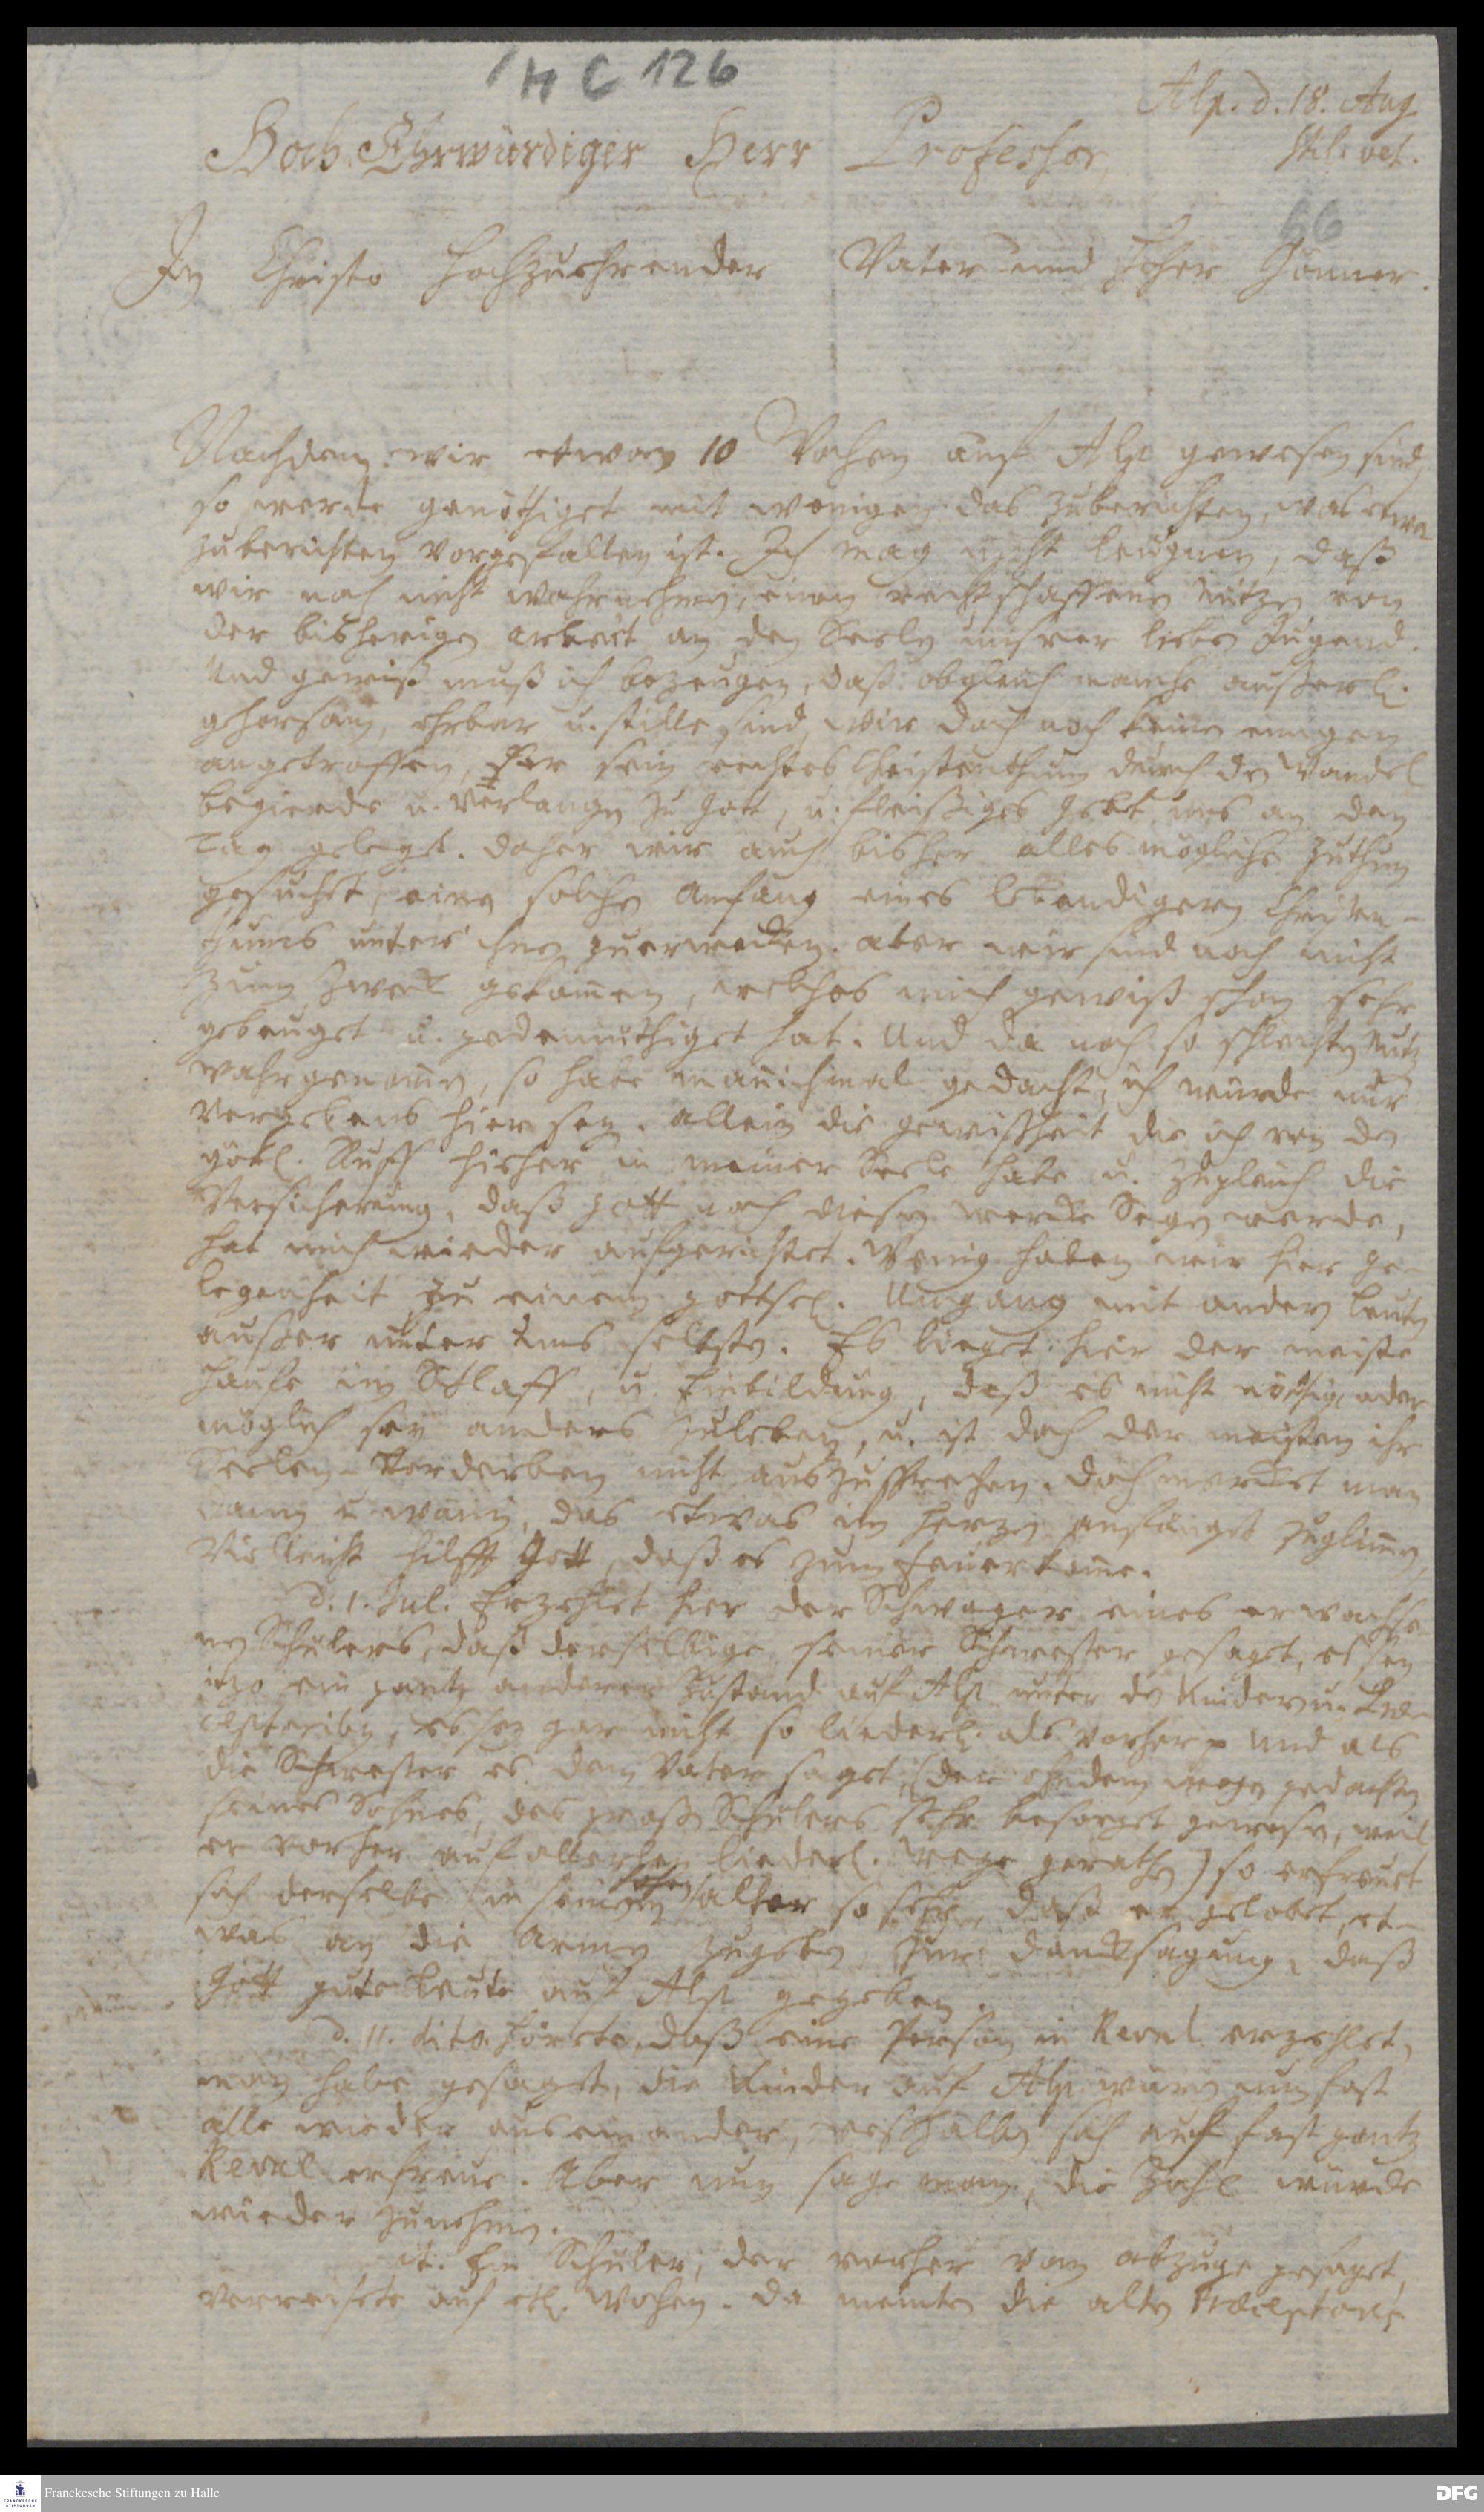 H C 126
Alp. d. 18. Aug.
Hoch-Ehrwürdiger Herr Professor,
stil. vet.
66
In Christo hochzuehrender Vater und hoher Gönner.
Nachdem wir etwan 10 Wochen auf Alp gewesen sind,
so werde genöthiget mit wenigen das zuberichten, was etwa
zuberichten vorgefallen ist. Ich mag nicht leugnen, daß
wir noch nicht wahrnehmen, einen rechtschaffenen Nutzen von
der bisherigen arbeit an den Seelen unsrer lieben Jugend.
Und gewiß muß ich bezeugen, daß obgleich manche äußerl.
gehorsam, ehrbar u. stille sind, wir doch noch keinen einigen
angetroffen, der sein rechtes Christenthum durch den Wandel
begierde u. Verlangen zu Gott, u. fleißiges Gebet uns an den
Tag geleget. daher wir auch bisher alles mögliche zuthun
gesuchet, einen solchen Anfang eines lebendigen Christen-
thums unter ihnen zuerwecken. aber wir sind noch nicht
zum Zweck gekommen, welches mich gewiß schon sehr
gebeuget u. gedemüthiget hat. Und da noch so schlechten Nutz
wahrgenommen, so habe mannichmal gedacht, ich würde nur
vergebens hier seyn. allein die gewißheit die ich von den
göttl. Ruff hieher in meiner Seele habe u. zugleich die
Versicherung, daß Gott noch diesen wercke Segen werde,
hat mich wieder aufgerichtet. Wenig haben wir hier ge-
legenheit zu einem gottsel. Umgang mit andern leuten
außer unter uns selbsten. Es lieget hier der meiste
hauffe im Schlaff, u. Einbildung, daß es nicht nöthig oder
möglich sey anders zuleben, u. ist doch der meisten ihr
Seelen-Verderben nicht auszusprechen. doch mercket man
dann u wann, das etwas im Herzen anfänget zuglimmen,
Vielleicht hilfft Gott, daß es zum feuer komme.
d. 1. Jul. Erzehlet hier der Schwager eines erwachse-
nen Schülers, daß derselbige seiner Schwester gesaget, es sey
itzo ein gantz anderer Zustand auf Alp unter den Kindern u. Præ-
ceptoribus, es sey gar nicht so liederl. als vorher. Und als
die Schwester es dem Vater saget, (der ohndem wegen gedachten
seines Sohnes, des großen Schülers sehr besorget gewesen, weil
er vorher auf allerhand liederl. Wege gerathen) so erfreuet
sich derselbe in seinem hohen alter so sehr, daß er gelobet, et-
was an die Armen zugeben zur Dancksagung, daß
Gott gute leute auf Alp gegeben.
d. 11. dito. hörete, daß eine Person in Reval erzehlet,
man habe gesaget, die Kinder auf Alp wären nun fast
alle wieder auseinander, weshalben sich auch fast gantz
Reval erfreue. Aber nun sage man, die Zahl würde
wieder zunehmen.
it. Ein Schüler, der vorher vom abzuge gesaget,
verreisete auf etl. Wochen. da meinten die alten Præceptores
Franckesche Stiftungen zu Halle
DFG